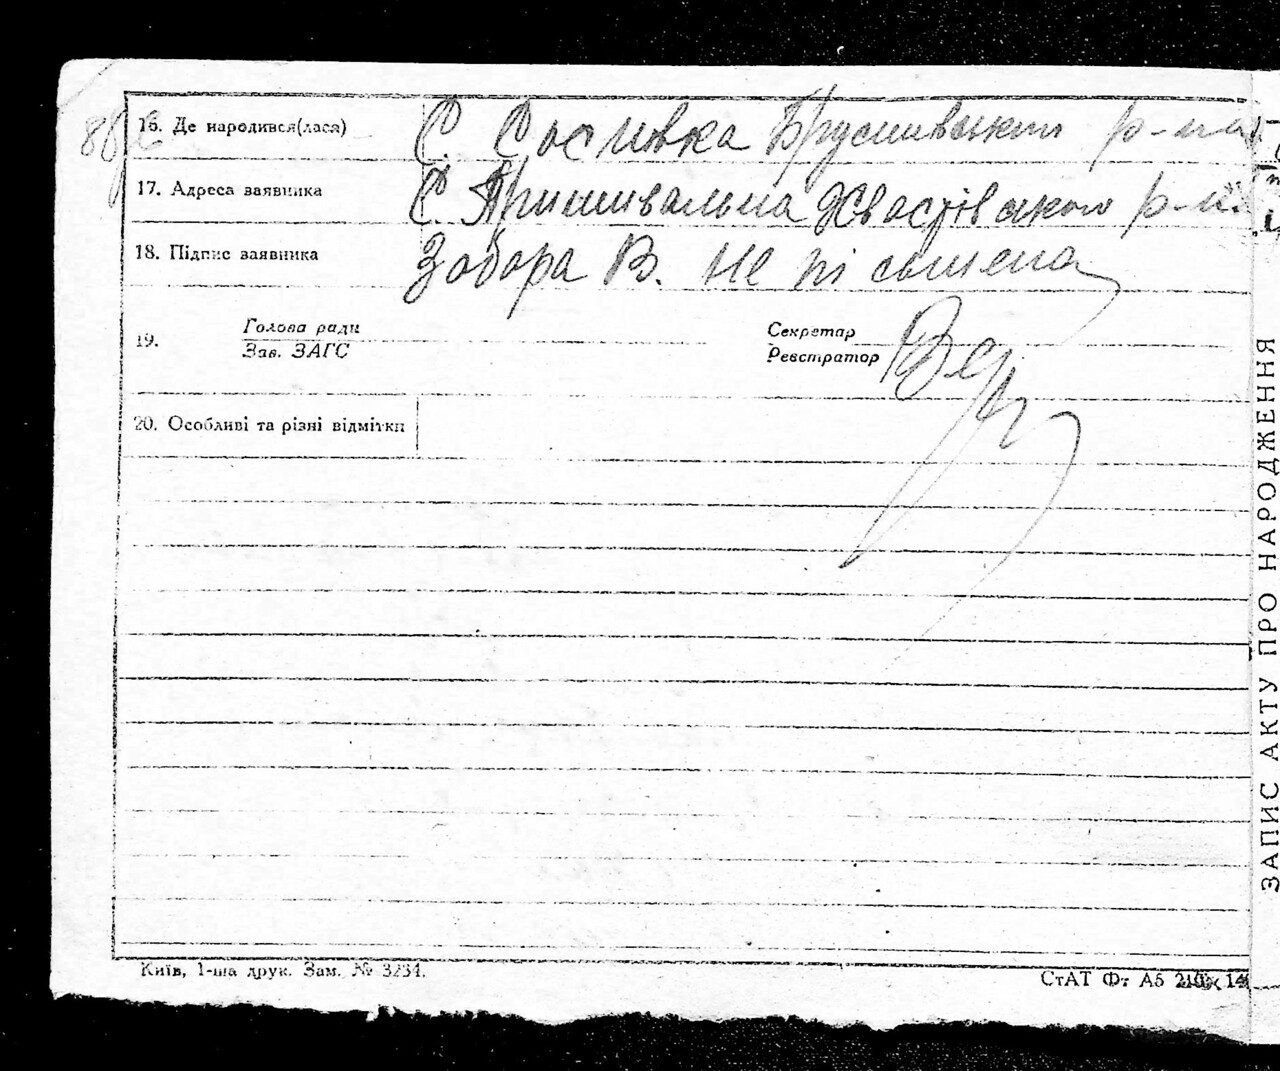 16. Де народився(лася) С. Соснівка Брусилівського р-на
17. Адреса заявника С. Пришивальна Хвастівського р-на
18. Підпис заявника Зобора В. не пісьмена
19. Голова ради Секретар
Зав. ЗАГС Реєстратор
20. Особливі та різні відмітки
Київ, 1-ша друк. Зам. № 3234.
СтАТ Фт А5
ЗАПИС АКТУ ПРО НАРОДЖЕННЯ